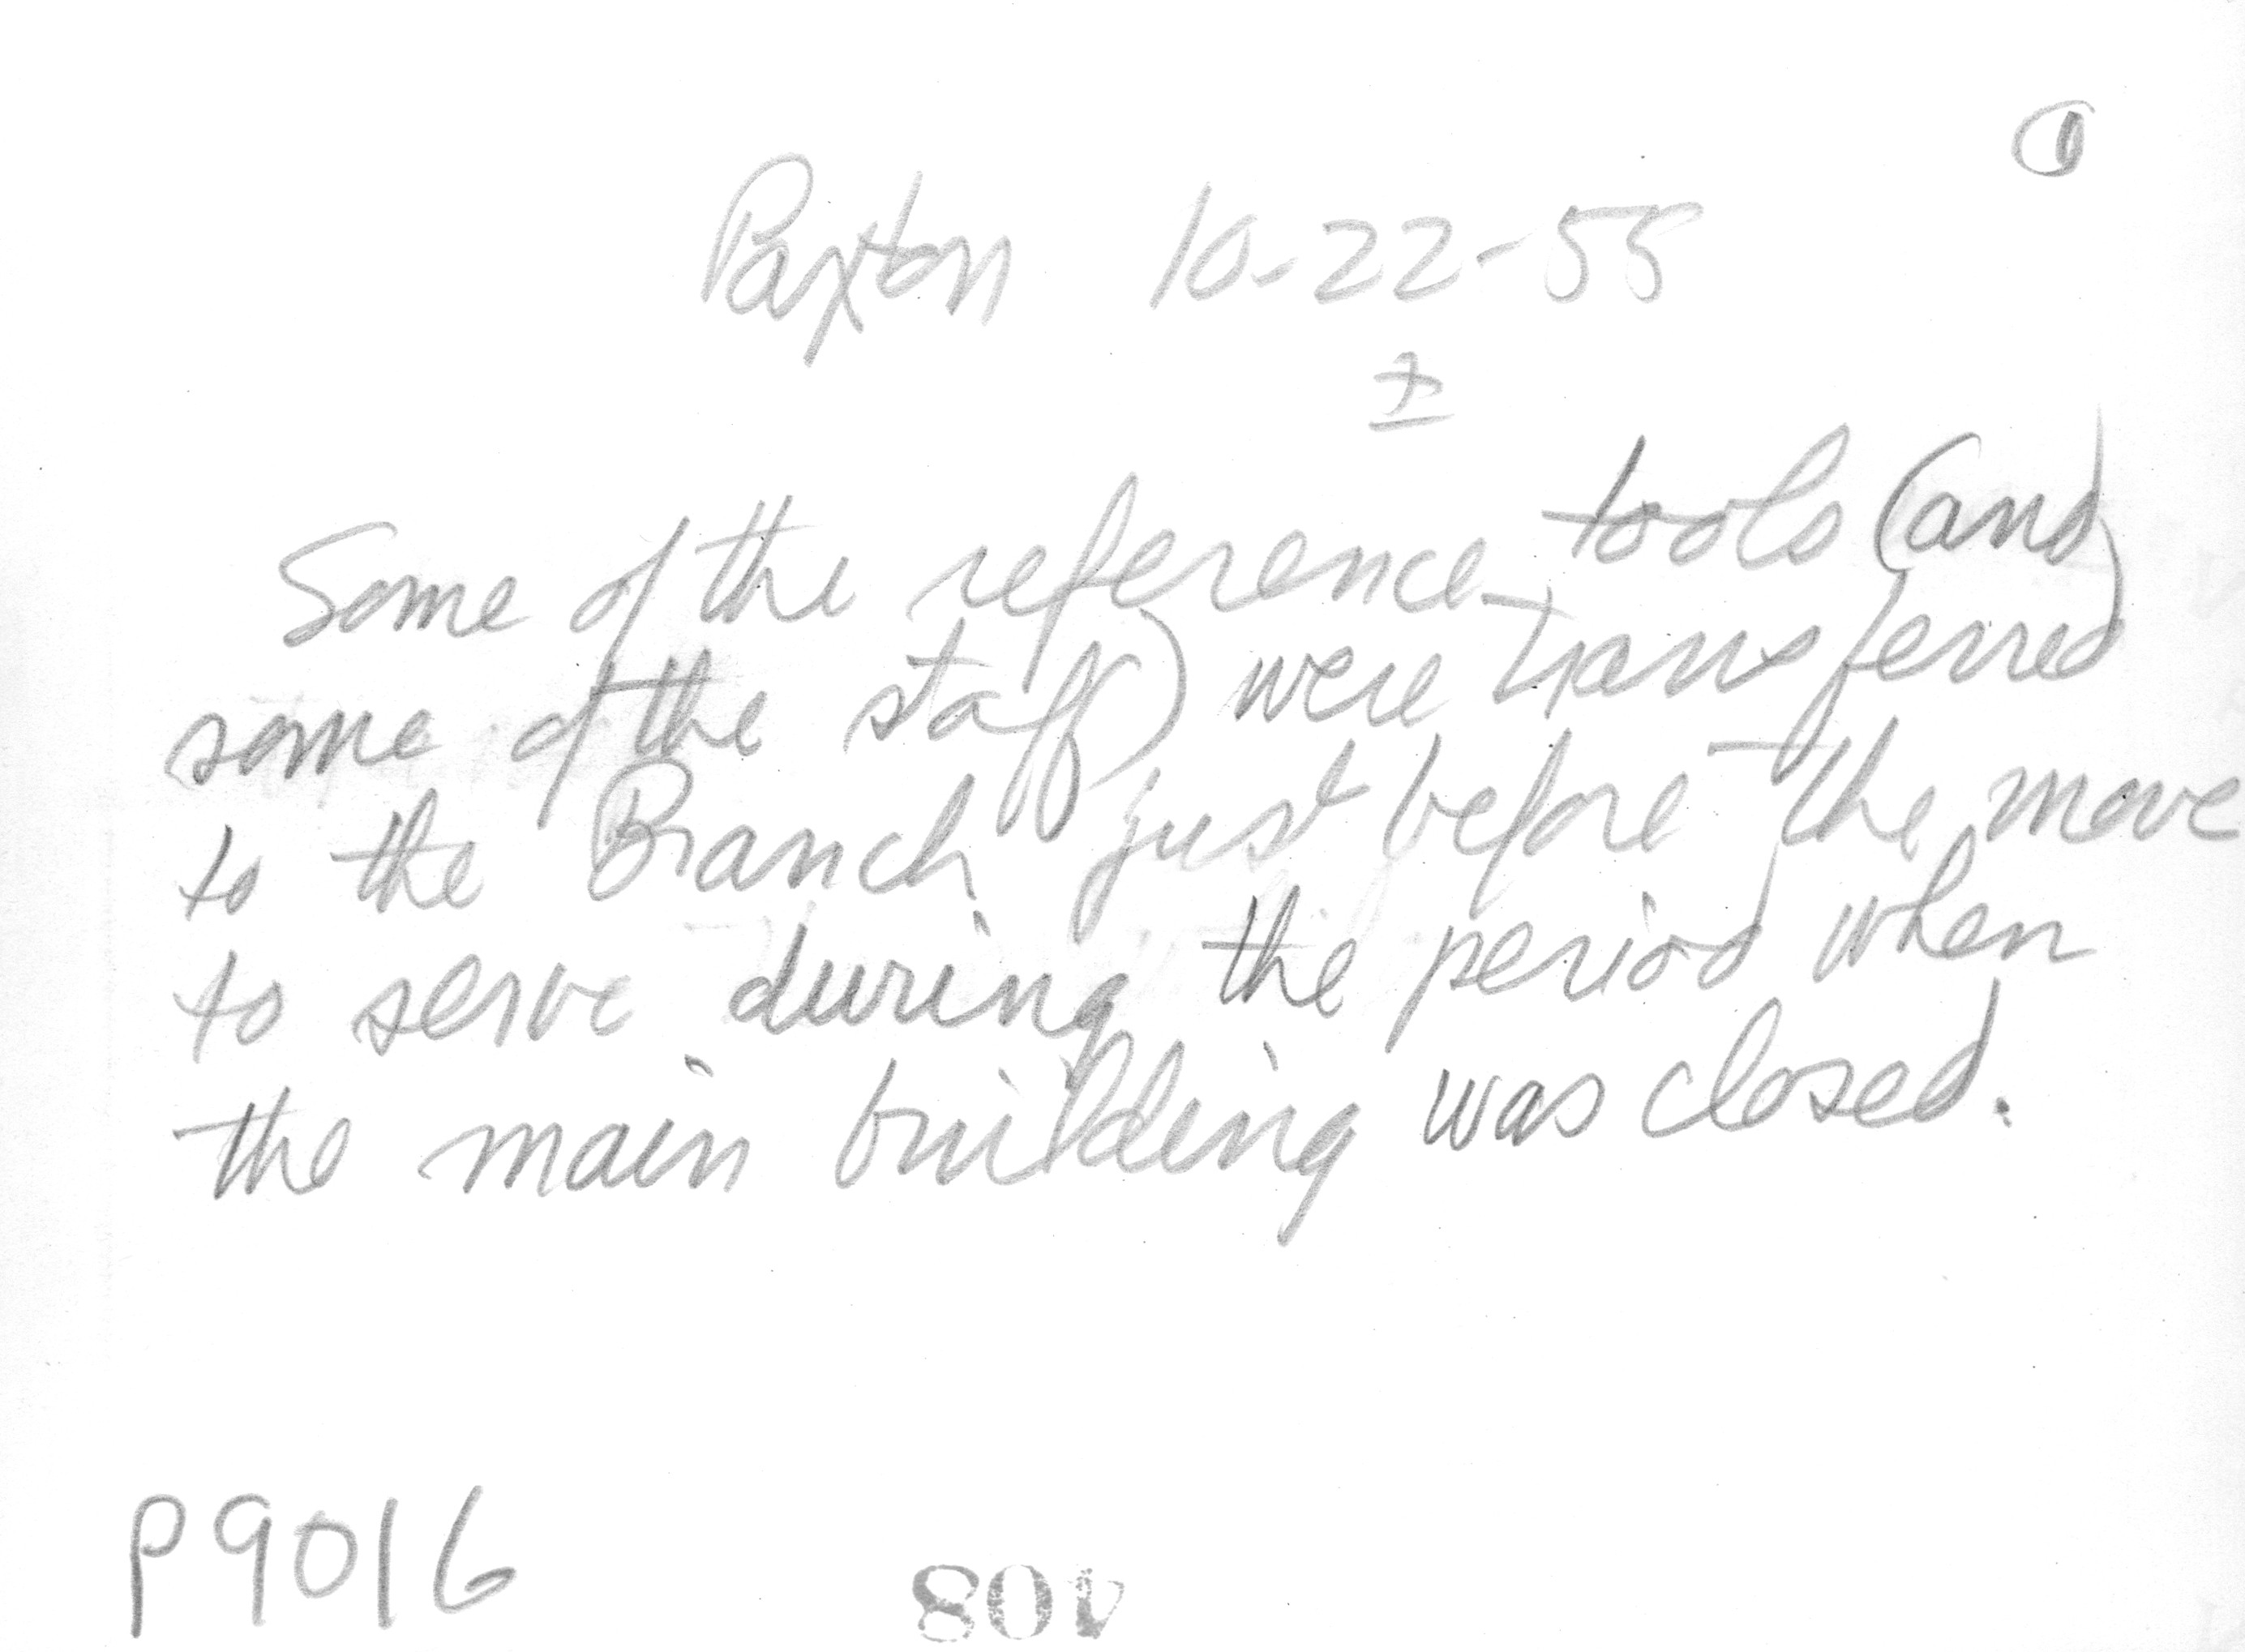 ①
Paxton 10-22-55
±
Some of the reference tools (and)
some of the staff) were transferred
to the Branch just before the move
to serve during the period when
the main building was closed.
P9016